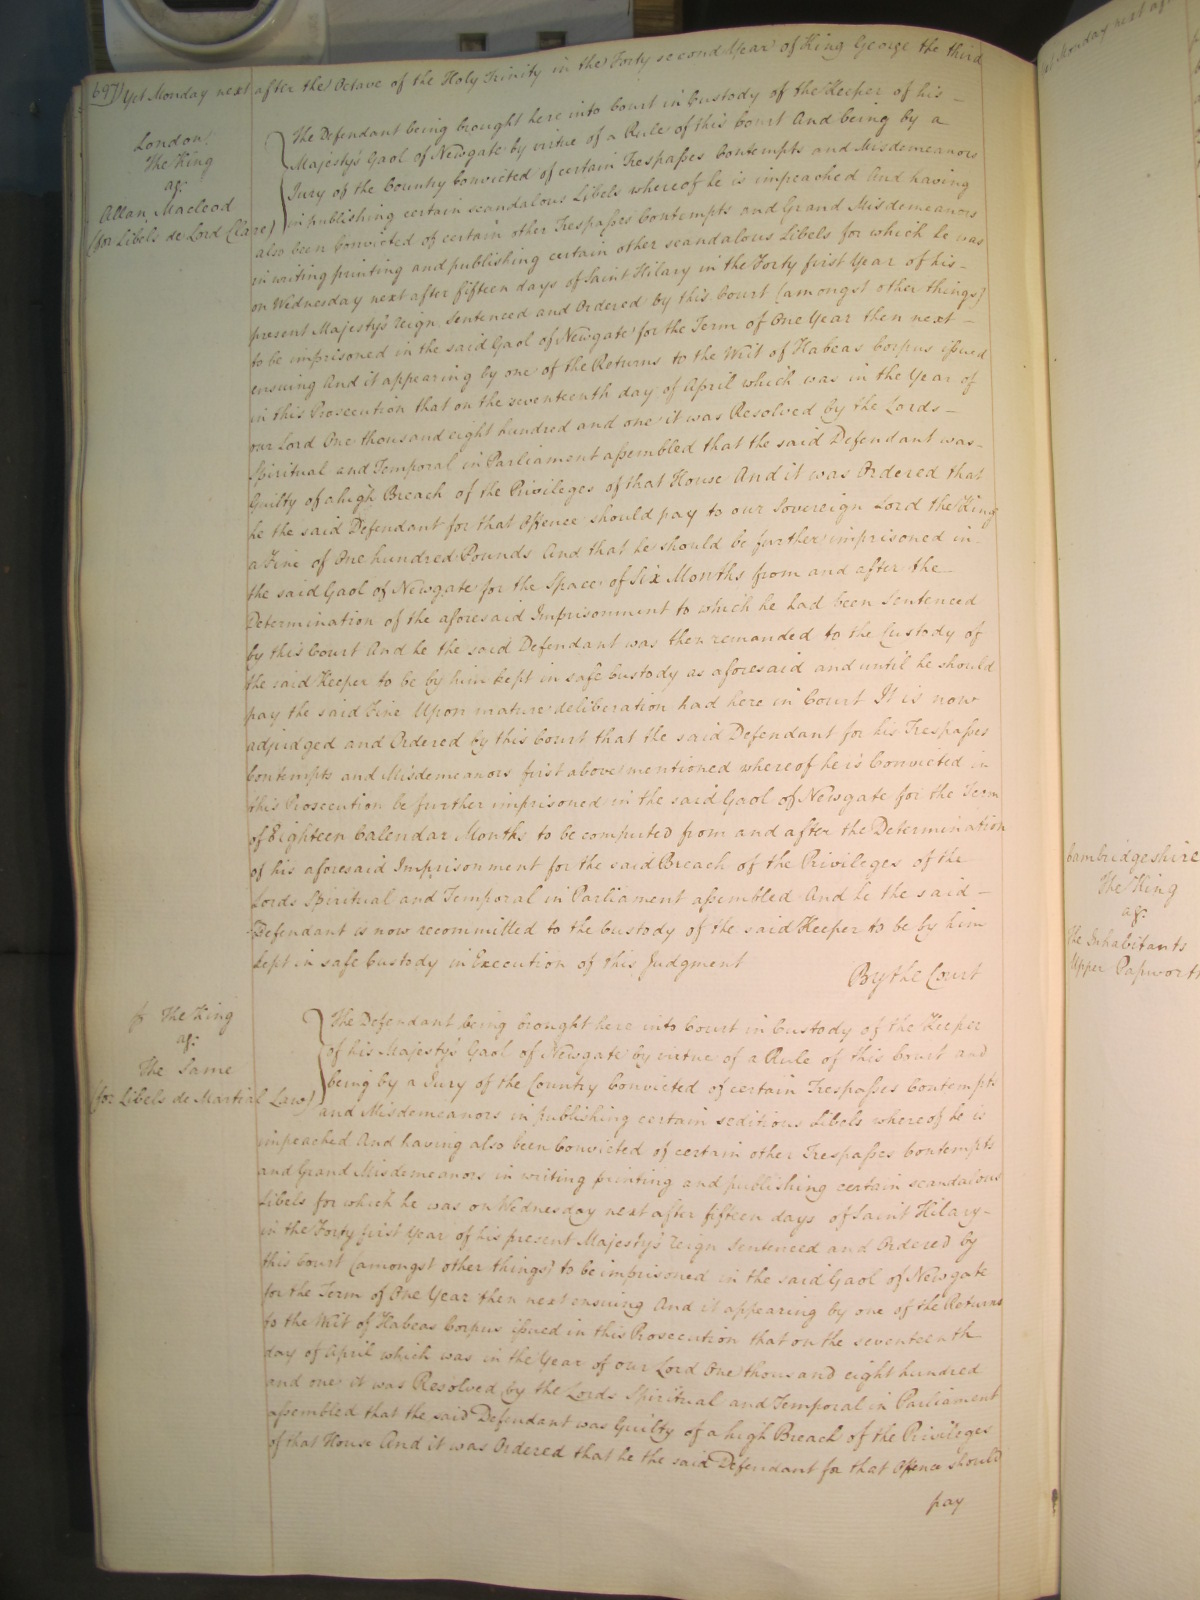 697) Yet Monday next after the Octave of the Holy Trinity in the Forty second Year of King George the third
London
The King
agt
Allan Macleod
(for Libels de Lord Clare)
The Defendant being brought here into Court in Custody of the Keeper of his –
Majesty's Gaol of Newgate by virtue of a Rule of this Court And being by a
Jury of the Country Convicted of certain Trespasses Contempts and Misdemeanors
in publishing certain scandalous Libels whereof he is impeached And having
also been Convicted of certain other Trespasses Contempts and Grand Misdemeanors
in writing printing and publishing certain other scandalous Libels for which he was
on Wednesday next after fifteen days of Saint Hilary in the Forty first Year of his –
present Majesty's reign Sentenced and Ordered by this Court (amongst other things)
to be imprisoned in the said Gaol of Newgate for the Term of One Year then next –
ensuing And it appearing by one of the Returns to the Writ of Habeas Corpus issued
in this Prosecution that on the seventeenth day of April which was in the Year of
our Lord One thousand eight hundred and one it was Resolved by the Lords –
Spiritual and Temporal in Parliament assembled that the said Defendant was –
Guilty of a high Breach of the Privileges of that House And it was Ordered that
he the said Defendant for that Offence should pay to our Sovereign Lord the King
a Fine of One hundred Pounds And that he should be further imprisoned in –
the said Gaol of Newgate for the Space of Six Months from and after the
Determination of the aforesaid Imprisonment to which he had been Sentenced
by this Court And he the said Defendant was then remanded to the Custody of
the said Keeper to be by him kept in safe Custody as aforesaid and until he should
pay the said Fine Upon mature deliberation had here in Court It is now
adjudged and Ordered by this Court that the said Defendant for his Trespasses
Contempts and Misdemeanors first above mentioned whereof he is Convicted in
this Prosecution be further imprisoned in the said Gaol of Newgate for the Term
of Eighteen Calendar Months to be computed from and after the Determination
of his aforesaid Imprisonment for the said Breach of the Privileges of the
Lords Spiritual and Temporal in Parliament assembled And he the said –
Defendant is now recommitted to the Custody of the said Keeper to be by him
kept in safe Custody in Execution of this Judgment
By the Court
The King
agt
The Same
(for Libels de Martial Law)
The Defendant being brought here into Court in Custody of the Keeper
of his Majesty's Gaol of Newgate by virtue of a Rule of this Court and
being by a Jury of the Country Convicted of certain Trespasses Contempts
and Misdemeanors in publishing certain seditious Libels whereof he is
impeached And having also been Convicted of certain other Trespasses Contempts
and Grand Misdemeanors in writing printing and publishing certain scandalous
Libels for which he was on Wednesday next after fifteen days of Saint Hilary –
in the Forty first Year of his present Majesty's reign Sentenced and Ordered by
this Court (amongst other things) to be imprisoned in the said Gaol of Newgate
for the Term of One Year then next ensuing And it appearing by one of the Returns
to the Writ of Habeas Corpus issued in this Prosecution that on the seventeenth
day of April which was in the Year of our Lord One thousand eight hundred
and one it was Resolved by the Lords Spiritual and Temporal in Parliament
assembled that the said Defendant was Guilty of a high Breach of the Privileges
of that House And it was Ordered that he the said Defendant for that Offence should
pay
Yet Monday next
Cambridgeshire
The King
agt
The Inhabitants
Upper Papworth